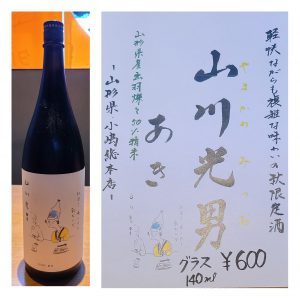 軽快ながらも複雑な味わいの秋限定酒
やまかわみつお
山川光男
あき
山形県産出羽燦々50%精米
-山形県・小嶋総本店-
グラス ¥600
140ml